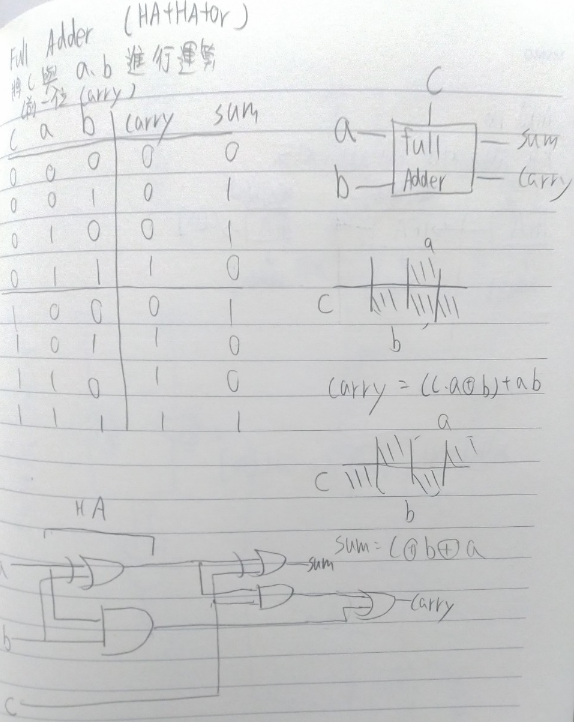 Full Adder (HA+HA+or)
將C與 a、b 進行運算
(前一位 carry)
C a b carry sum
0 0 0 0 0
0 0 1 0 1
0 1 0 0 1
0 1 1 1 0
1 0 0 0 1
1 0 1 1 0
1 1 0 1 0
1 1 1 1 1
C
a
full
Adder
sum
b
carry
a
C
b
carry = (C·a⊕b)+ab
a
C
b
sum = C⊕b⊕a
HA
a
sum
carry
b
C